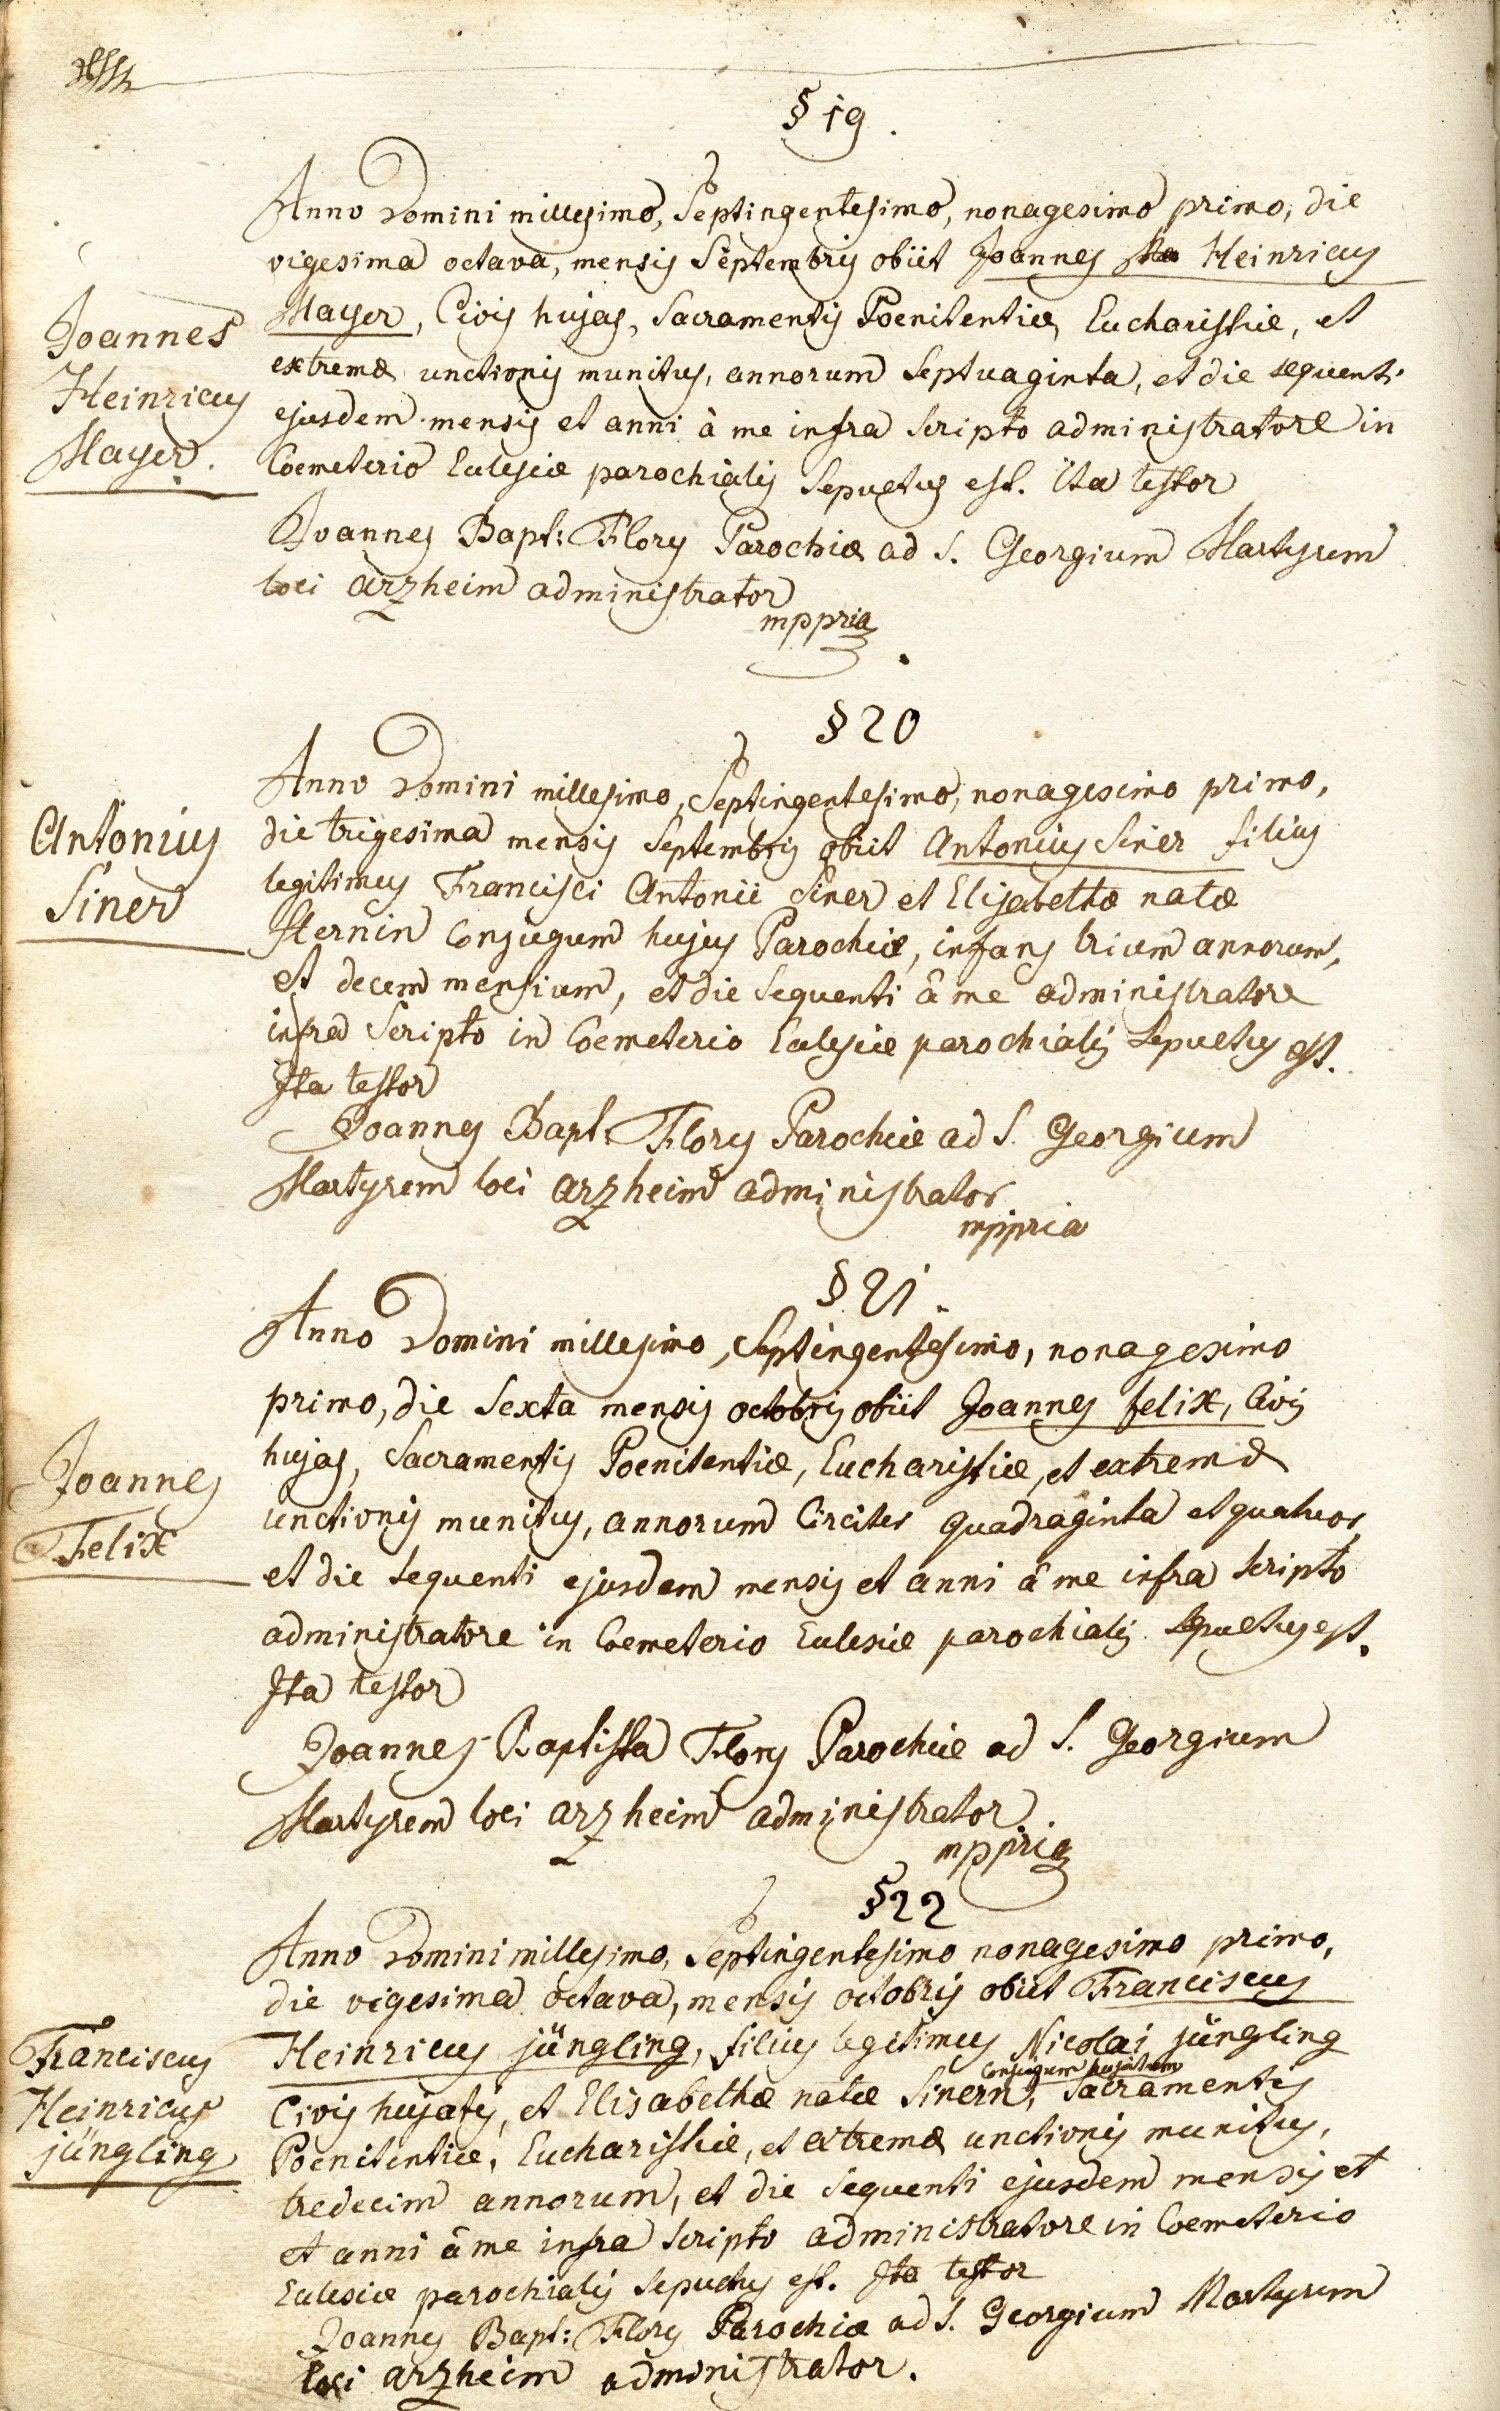 § 19.
Anno Domini millesimo, Septingentesimo, nonagesimo primo, die
vigesima octava, mensis Septembris obiit Joannes Heinricus
Mayer, Civis hujas, Sacramentis Poenitentiæ, Eucharistiæ, et
extremæ unctionis munitus, annorum Septuaginta, et die sequenti
ejusdem mensis et anni â me infra scripto administratore in
Coemeterio Eclesiæ parochialis Sepultus est. ita testor
Joannes Bapt: Flory Parochiæ ad S. Georgium Martyrem
loci arzheim administrator
mppria
Joannes
Heinricus
Mayer.
§ 20
Anno Domini millesimo, Septingentesimo, nonagesimo primo,
die trigesima mensis Septembris obiit Antonius Siner filius
legitimus Francisci Antonii Siner et Elisabethæ natæ
Sternin Conjugum hujus Parochiæ, infans trium annorum,
et decem mensium, et die sequenti â me administratore
infra Scripto in Coemeterio Eclesiæ parochialis Sepultus est.
Ita testor
Joannes Bapt. Flory Parochiæ ad S. Georgium
Martyrem loci arzheim administrator
mppria
Antonius
Siner
§ 21.
Anno Domini millesimo, Septingentesimo, nonagesimo
primo, die Sexta mensis octobris obiit Joannes felix, Civis
hujas, Sacramentis Poenitentiæ, Eucharistiæ, et extremæ
unctionis munitus, annorum Circiter quadraginta et quatuor,
et die sequenti ejusdem mensis et anni â me infra scripto
administratore in Coemeterio Eclesiæ parochialis Sepultus est.
Ita testor
Joannes Baptista Flory Parochiæ ad S. Georgium
Martyrem loci arzheim administrator
mppria
Joannes
Felix
§ 22
Anno Domini millesimo, Septingentesimo nonagesimo primo,
die vigesima octava, mensis octobris obiit Franciscus
Heinricus jüngling, filius legitimus Nicolai jüngling
Conjugum hujatum
Civis hujatis, et Elisabethæ natæ Sinern, Sacramentis
Poenitentiæ, Eucharistiæ, et extremæ unctionis munitus,
tredecim annorum, et die sequenti ejusdem mensis et
et anni â me infra scripto administratore in Coemeterio
Eclesiæ parochialis sepultus est. Ita testor
Joannes Bapt: Flory Parochiæ ad S. Georgium Martyrem
loci arzheim administrator.
Franciscus
Heinricus
jüngling